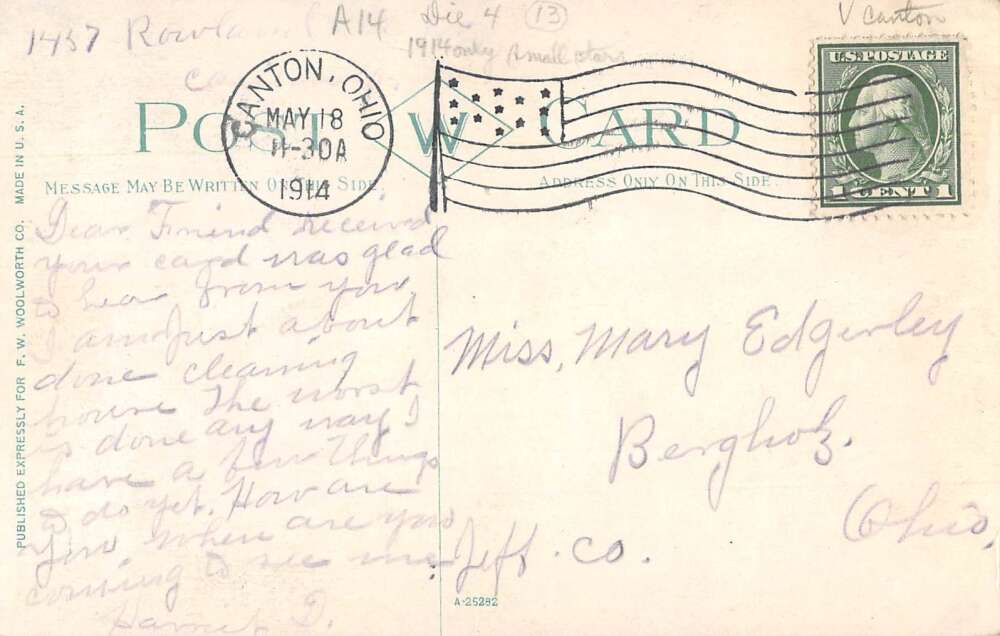 1437 Rowland
A14 Die 4 (13)
V Canton
1914 only small stars
CANTON, OHIO
MAY 18
11-30A
1914
U.S. POSTAGE
1 CENT 1
POST W CARD
MESSAGE MAY BE WRITTEN ON THIS SIDE.
ADDRESS ONLY ON THIS SIDE.
PUBLISHED EXPRESSLY FOR F. W. WOOLWORTH CO. MADE IN U. S. A.
Dear Friend received
your card was glad
to hear from you
I am just about
done cleaning
house The worst
is done any way I
have a few things
to do yet. How are
you when are you
coming to see me
Harriet D.
Miss, Mary Edgerley
Bergholz.
Ohio,
Jeff. Co.
A-25282